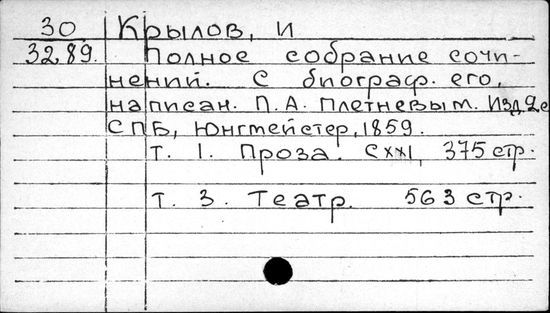 30 Крылов, И
32.89. Полное собрание сочи-
нений. С биограф. его,
написан. П.А. Плетневым. Изд 2е
СПБ, Юнгмейстер, 1859.
т. 1. Проза. Cxxi, 375 стр.
т. 3. Театр. 563 стр.